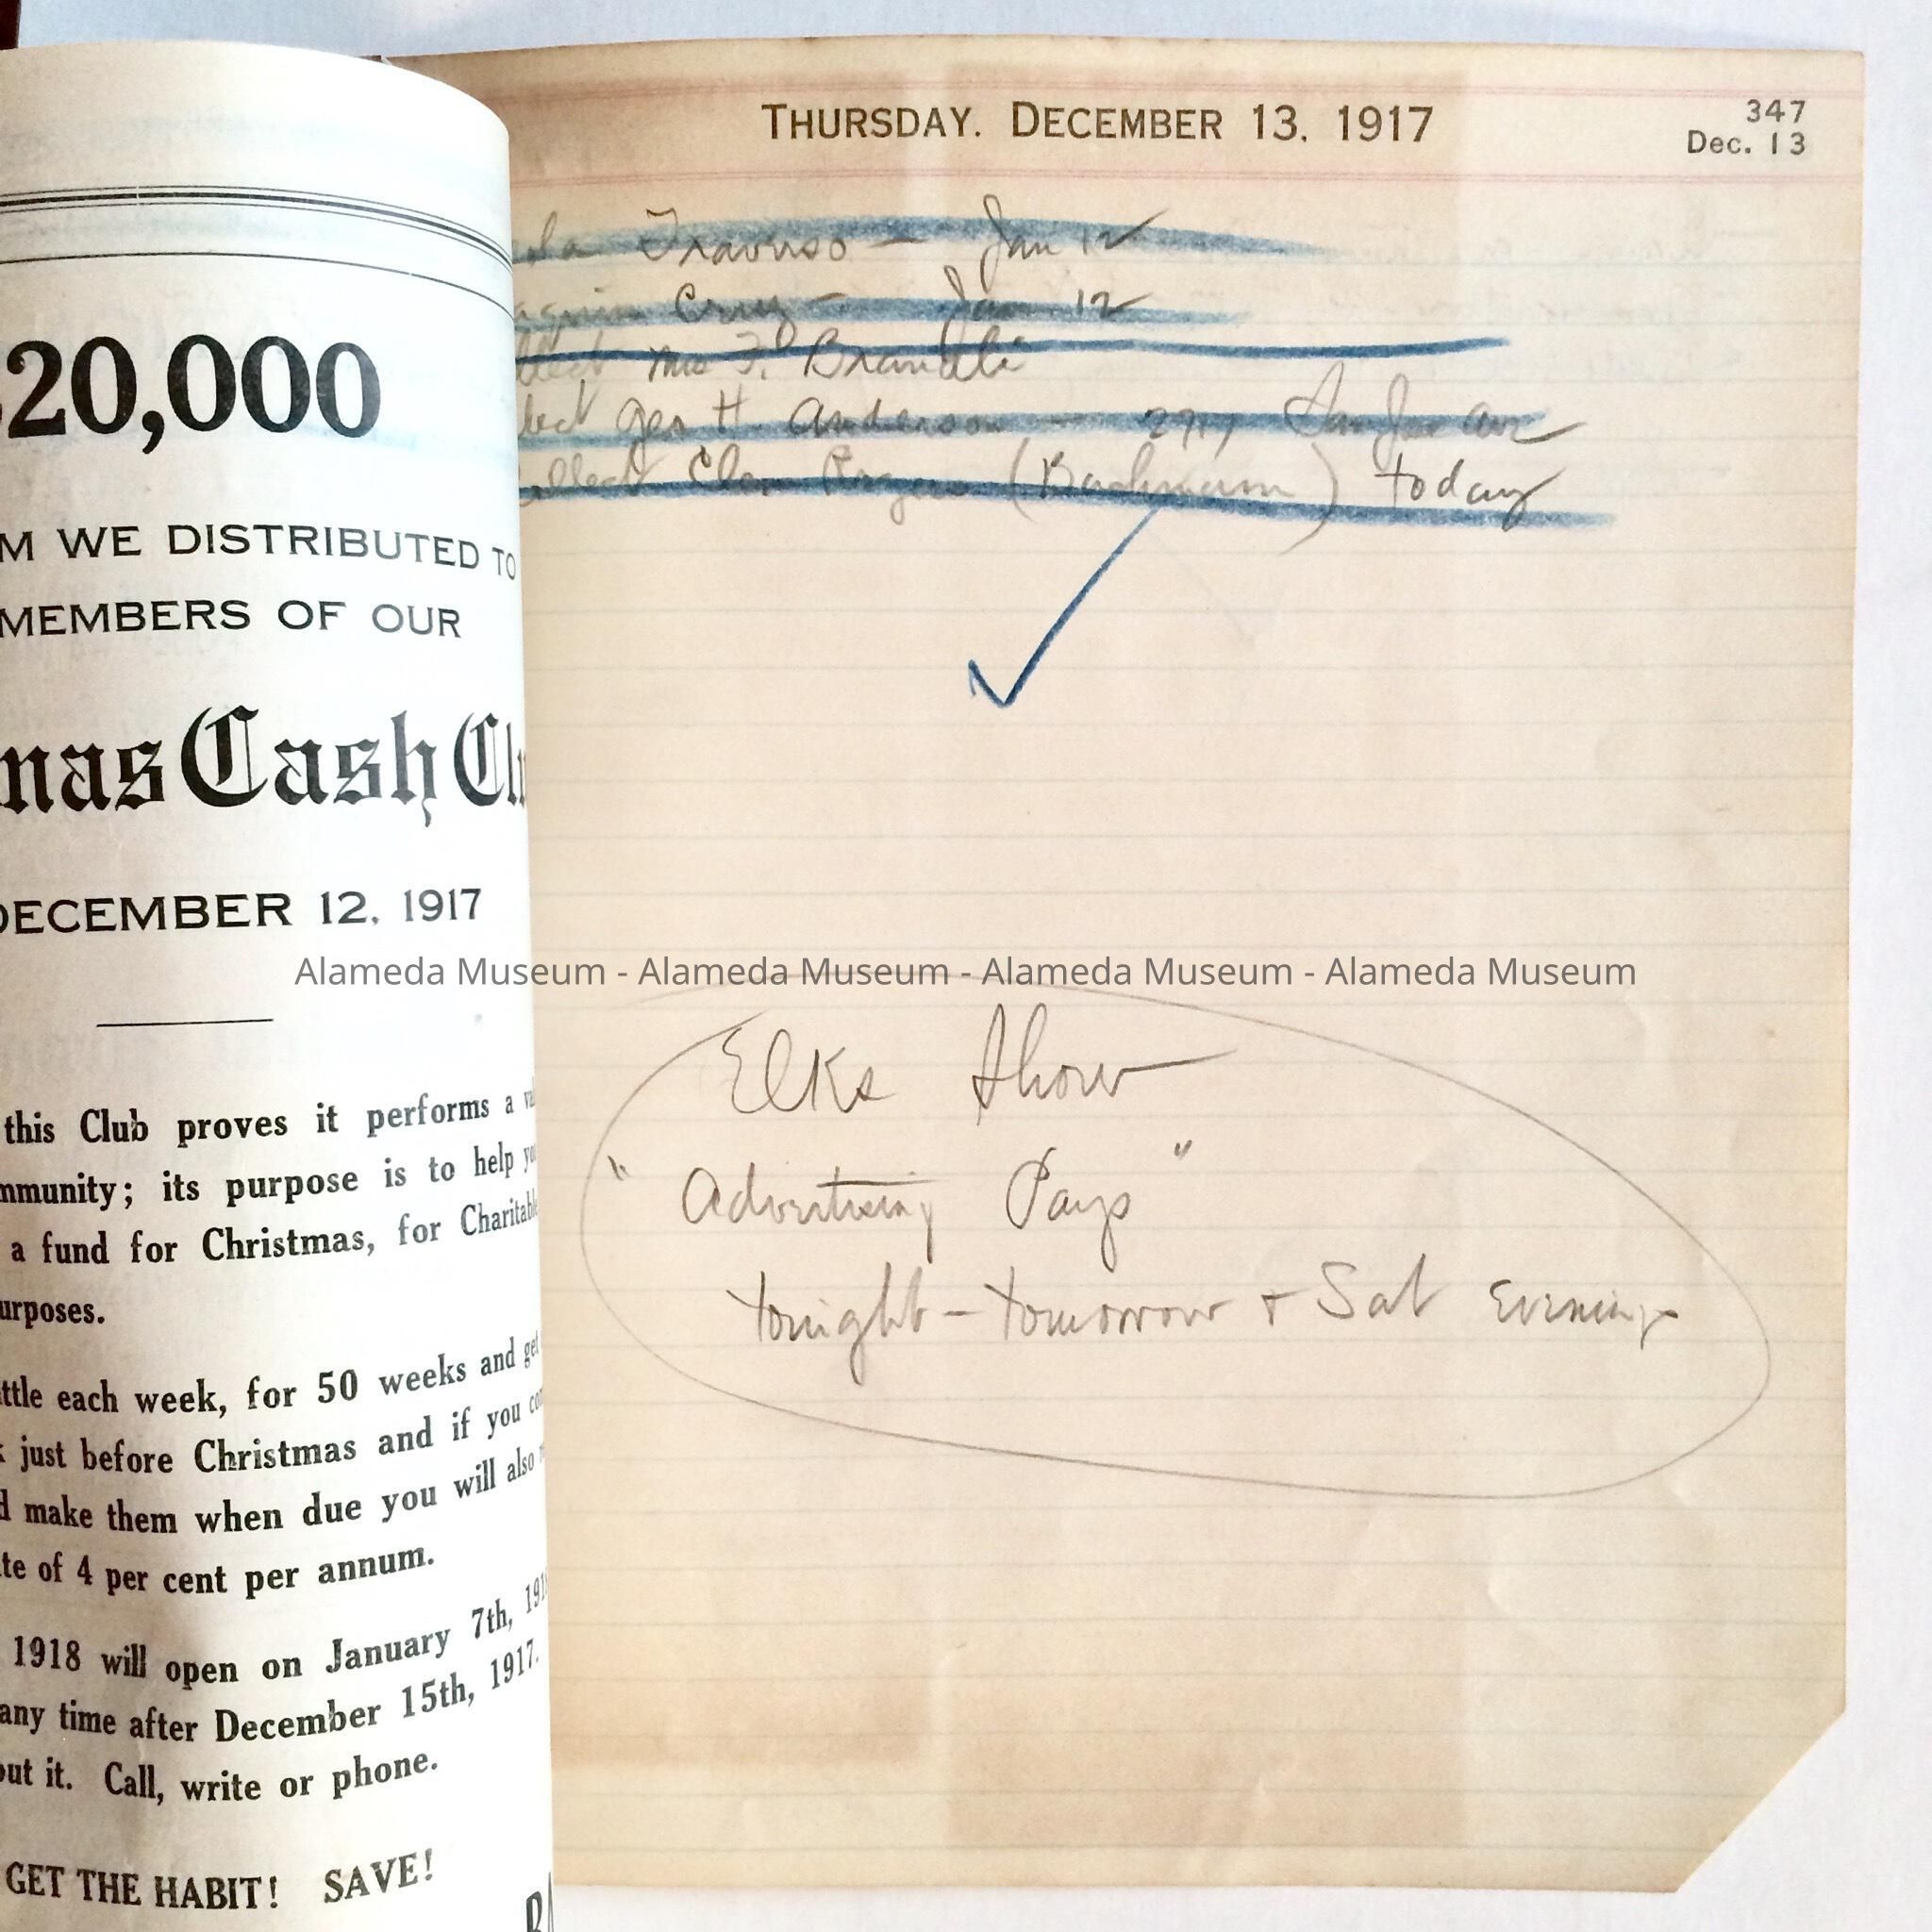 20,000
M WE DISTRIBUTED TO
MEMBERS OF OUR
mas Cash Cl
DECEMBER 12, 1917
this Club proves it performs a
mmunity; its purpose is to help
a fund for Christmas, for Charitabl
urposes.
ttle each week, for 50 weeks and get
just before Christmas and if you
d make them when due you will also
te of 4 per cent per annum.
1918 will open on January 7th, 191
any time after December 15th, 1917.
out it. Call, write or phone.
GET THE HABIT! SAVE!
THURSDAY. DECEMBER 13, 1917
347
Dec. 13
Traverso - Jan 12
Cruz - Jan 12
Mrs F.
Geo H. Anderson - San Jose ave
Collect (Bachmann) today
Alameda Museum - Alameda Museum - Alameda Museum - Alameda Museum
Elks Show
"Advertising Pays"
tonight - tomorrow + Sat Evenings